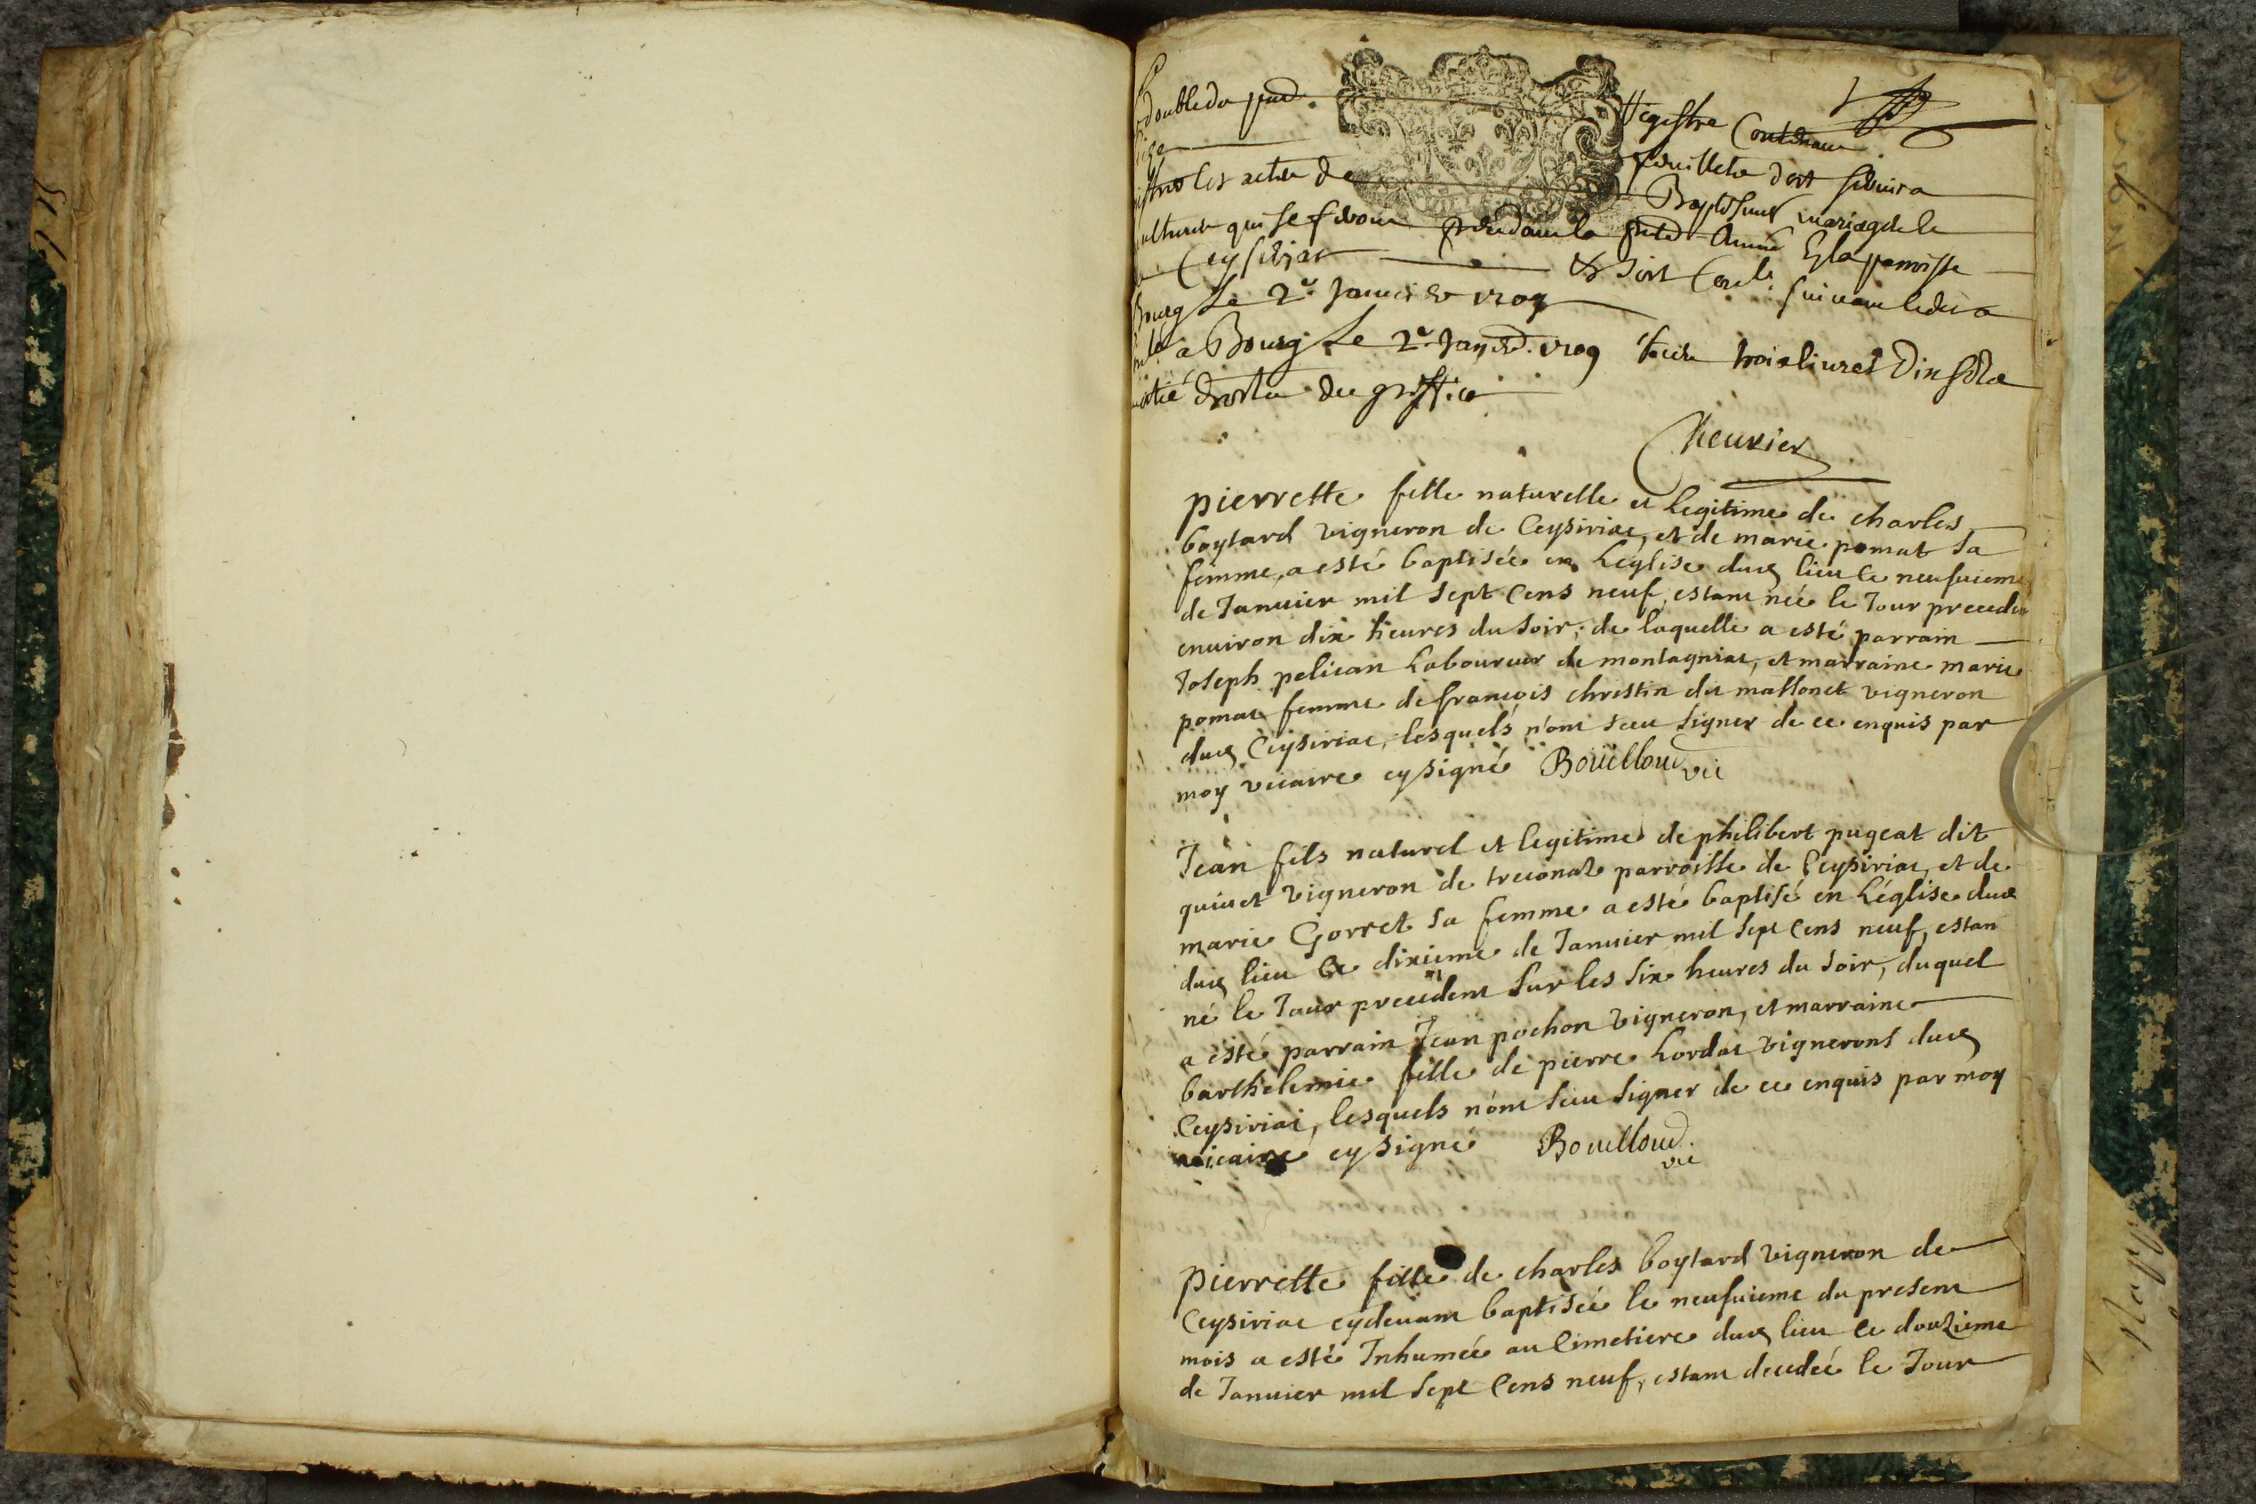 double du pnt Registre Contenant
feuillets dont servira
les actes de Baptesmes mariages
qui se feront pendant la pnte Année En la parroisse
Ceyseriat
Bourg Le 2e Janvier 1709
a Bourg Le 2e Janvier 1709 trois livres dix sols
du greffier
Cheurier
pierrette fille naturelle et legitime de charles
boytard vigneron de Ceysiriac, et de marie pomat sa
femme, a esté baptisée en L'église dud lieu le neufuieme
de Januier mil sept Cens neuf, estant née le Jour precedent
enuiron dix heures du soir; de laquelle a esté parrain
Joseph pelican Laboureur de montagniac, et marraine marie
pomat femme de françois christin du massonet vigneron
dud Ceysiriac, lesquels n'ont sceu signer de ce enquis par
moy vicaire cy signé Boüilloud vic
Jean fils naturel et legitime de philibert pugeat dit
quiuet vigneron de treconas parroisse de Ceysiriac, et de
marie Gorret sa femme a esté baptisé en L'église dud
dud lieu le dixieme de Januier mil sept Cens neuf, estan
né le Jour precedent sur les six heures du soir, duquel
a esté parrain Jean pochon vigneron, et marraine
barthelemie fille de pierre Lordat vignerons dud
Ceysiriac, lesquels n'ont sceu signer de ce enquis par moy
vicaire cy signé Bouilloud vic
pierrette fille de charles boytard vigneron de
Ceysiriac cydeuant baptisée le neufuieme du present
mois a esté Inhumée au Cimetiere dud lieu le douzieme
de Januier mil sept Cens neuf, estant decedée le Jour